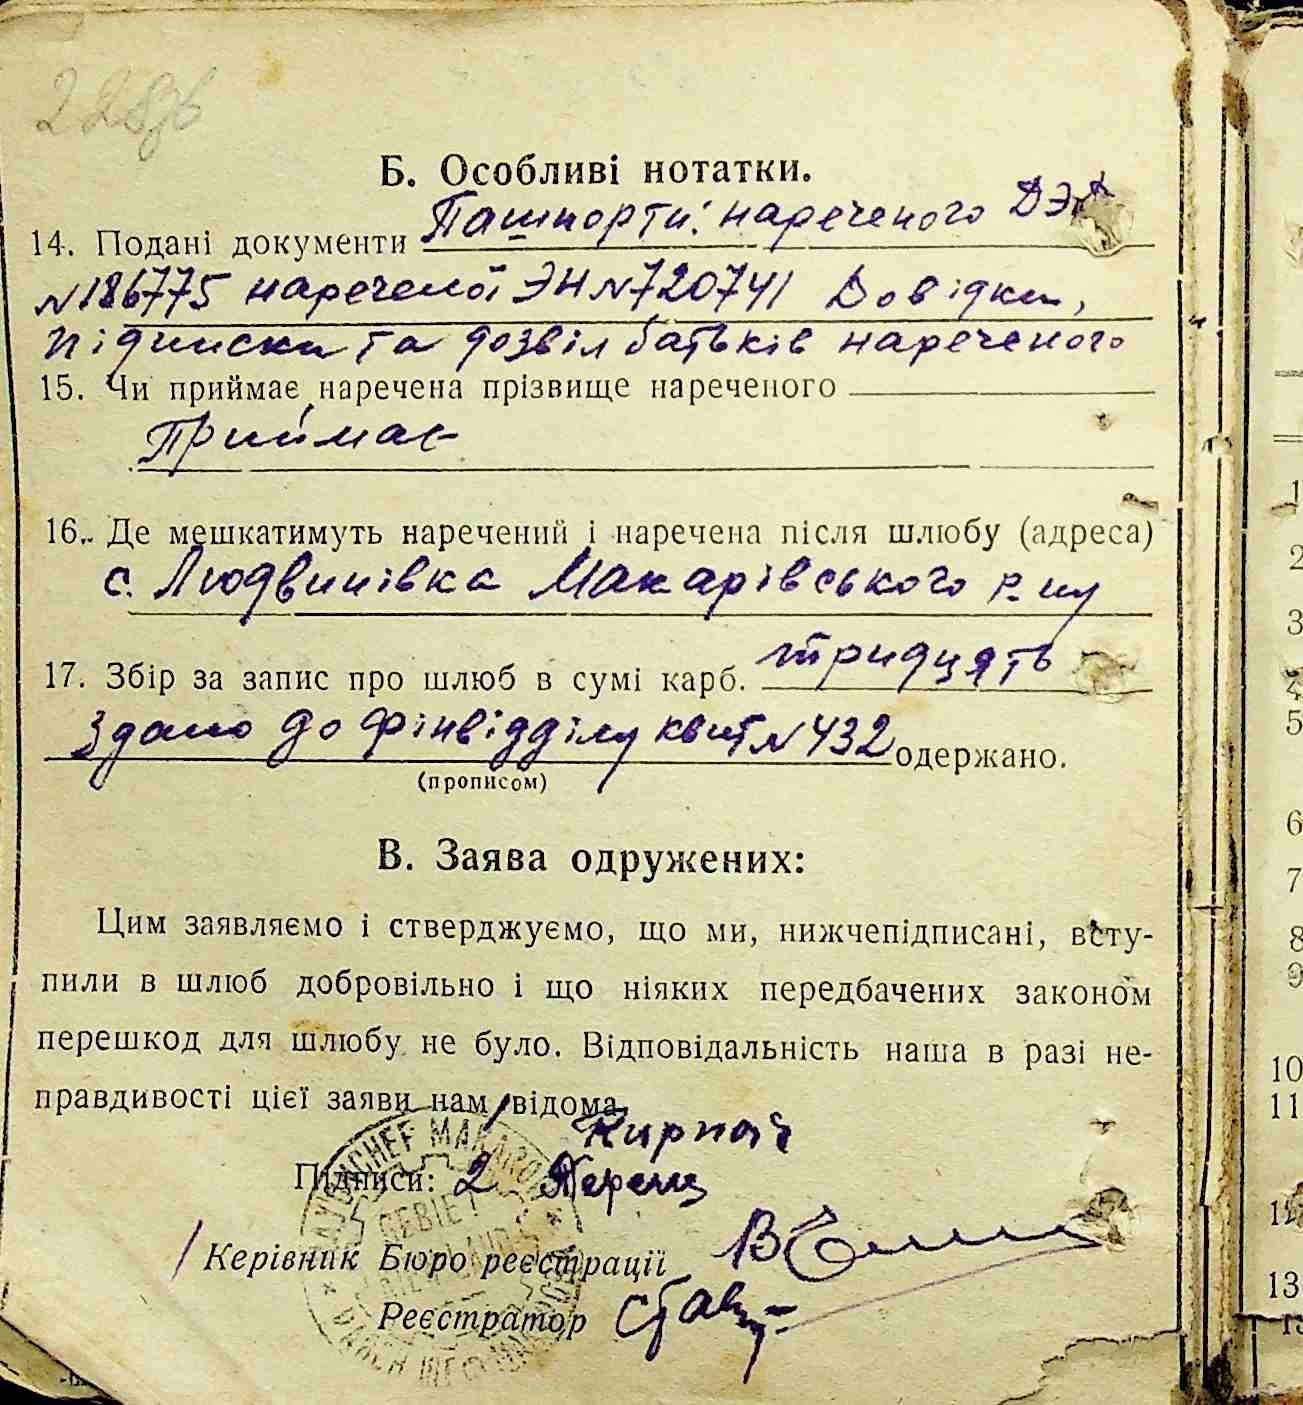 Б. Особливі нотатки.
14. Подані документи Пашпорти: нареченого
N186775 нареченої ЭН N720741 Довідки,
підписки та дозвіл батьків нареченого
15. Чи приймає наречена прізвище нареченого
Приймає
16. Де мешкатимуть наречений і наречена після шлюбу (адреса)
с. Людвинівка Макарівського р-ну
17. Збір за запис про шлюб в сумі карб. тридцять
здано до фінвідділу квит N 432 одержано.
(прописом)
В. Заява одружених:
Цим заявляємо і стверджуємо, що ми, нижчепідписані, всту-
пили в шлюб добровільно і що ніяких передбачених законом
перешкод для шлюбу не було. Відповідальність наша в разі не-
правдивості цієї заяви нам відома.
1 Кирпач
Підписи: 2
Керівник Бюро реєстрації
Реєстратор
1
2
3
4
5
6
7
8
9
10
11
12
13